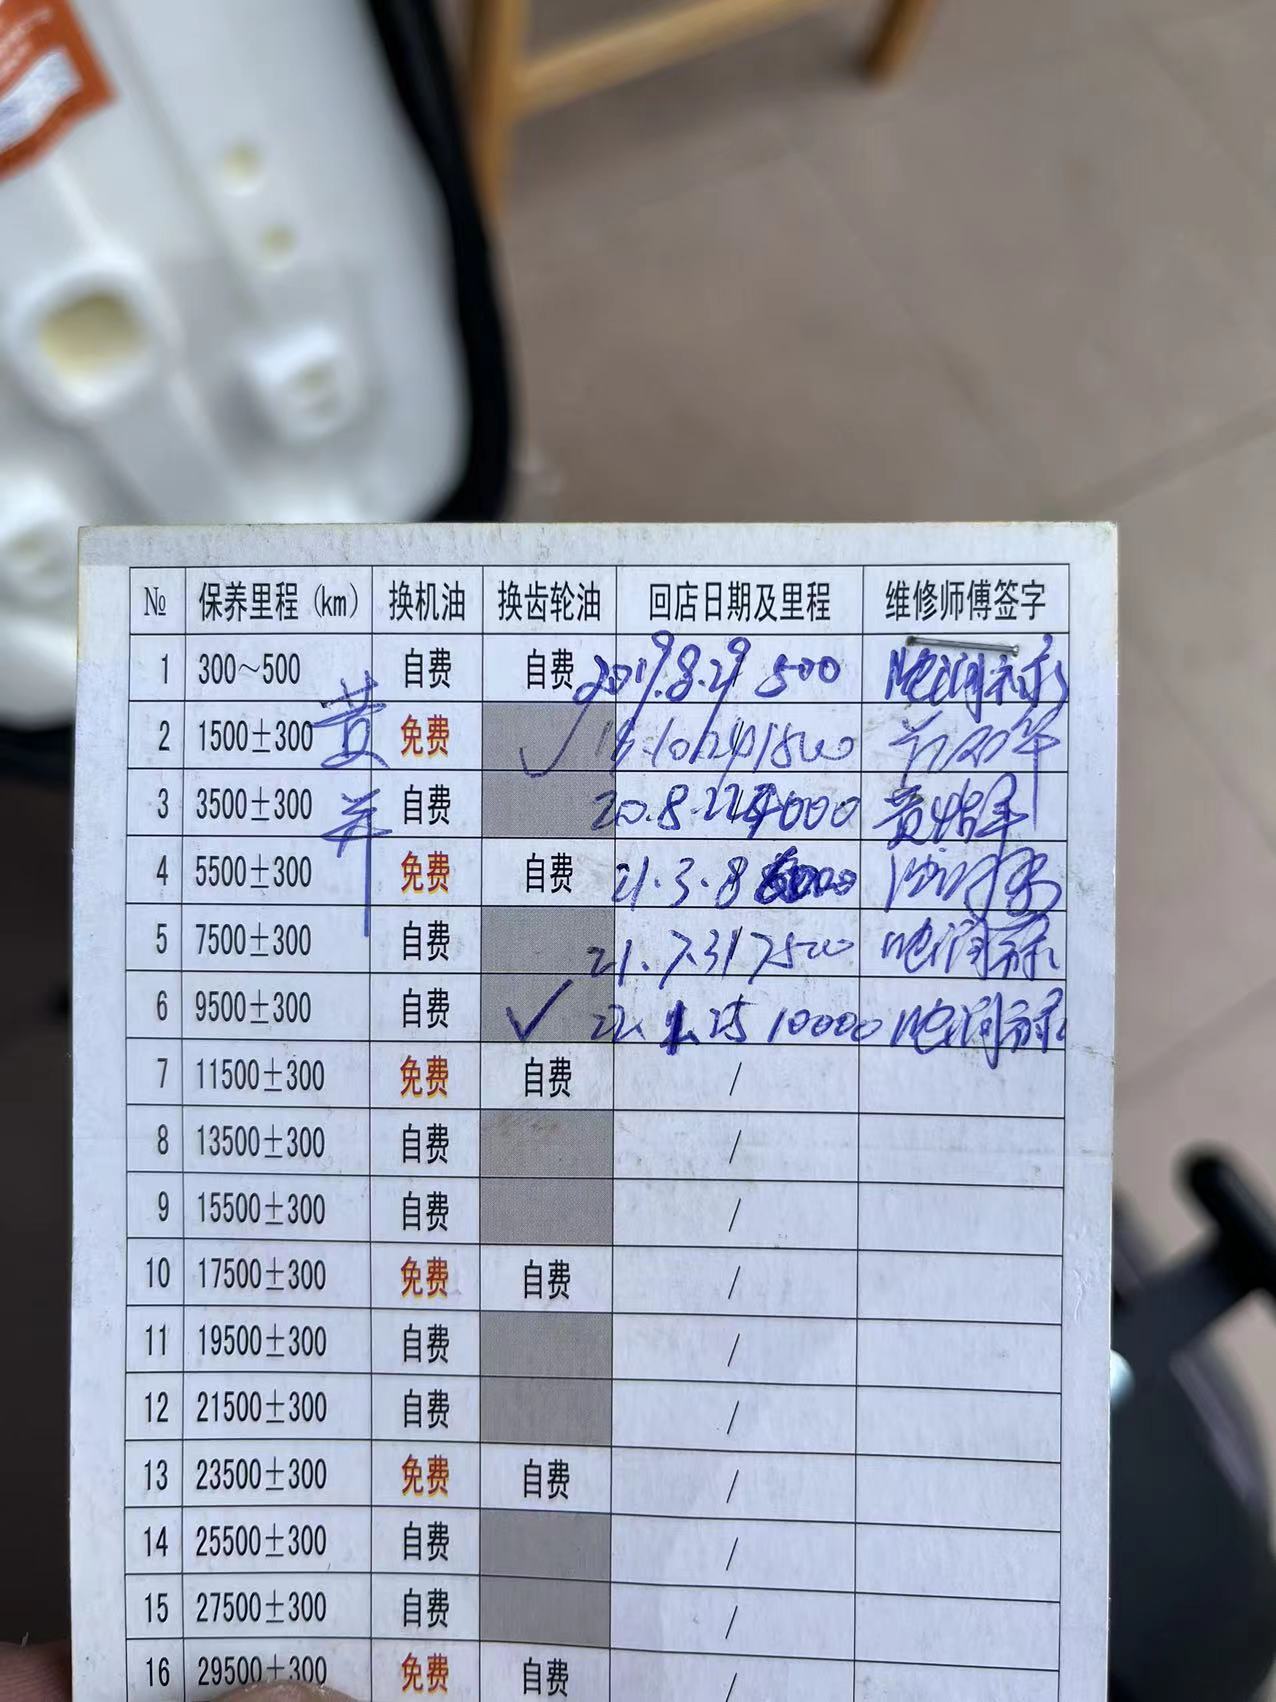 № 保养里程(km) 换机油 换齿轮油 回店日期及里程 维修师傅签字
1 300~500 自费 自费 2019.8.29 500
2 1500±300 黄 免费 ✓ 1500
3 3500±300 自费 20.8.22 000
4 5500±300 免费 自费 21.3.8
5 7500±300 自费 21.7.31 7500
6 9500±300 自费 ✓ 22.1.25 10000
7 11500±300 免费 自费 /
8 13500±300 自费 /
9 15500±300 自费 /
10 17500±300 免费 自费 /
11 19500±300 自费 /
12 21500±300 自费 /
13 23500±300 免费 自费 /
14 25500±300 自费 /
15 27500±300 自费 /
16 29500±300 免费 自费 /